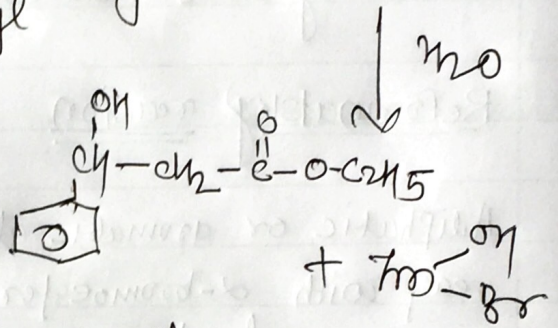 H2O
OH
O
CH-CH2-C-O-C2H5
+ Zn
OH
Br